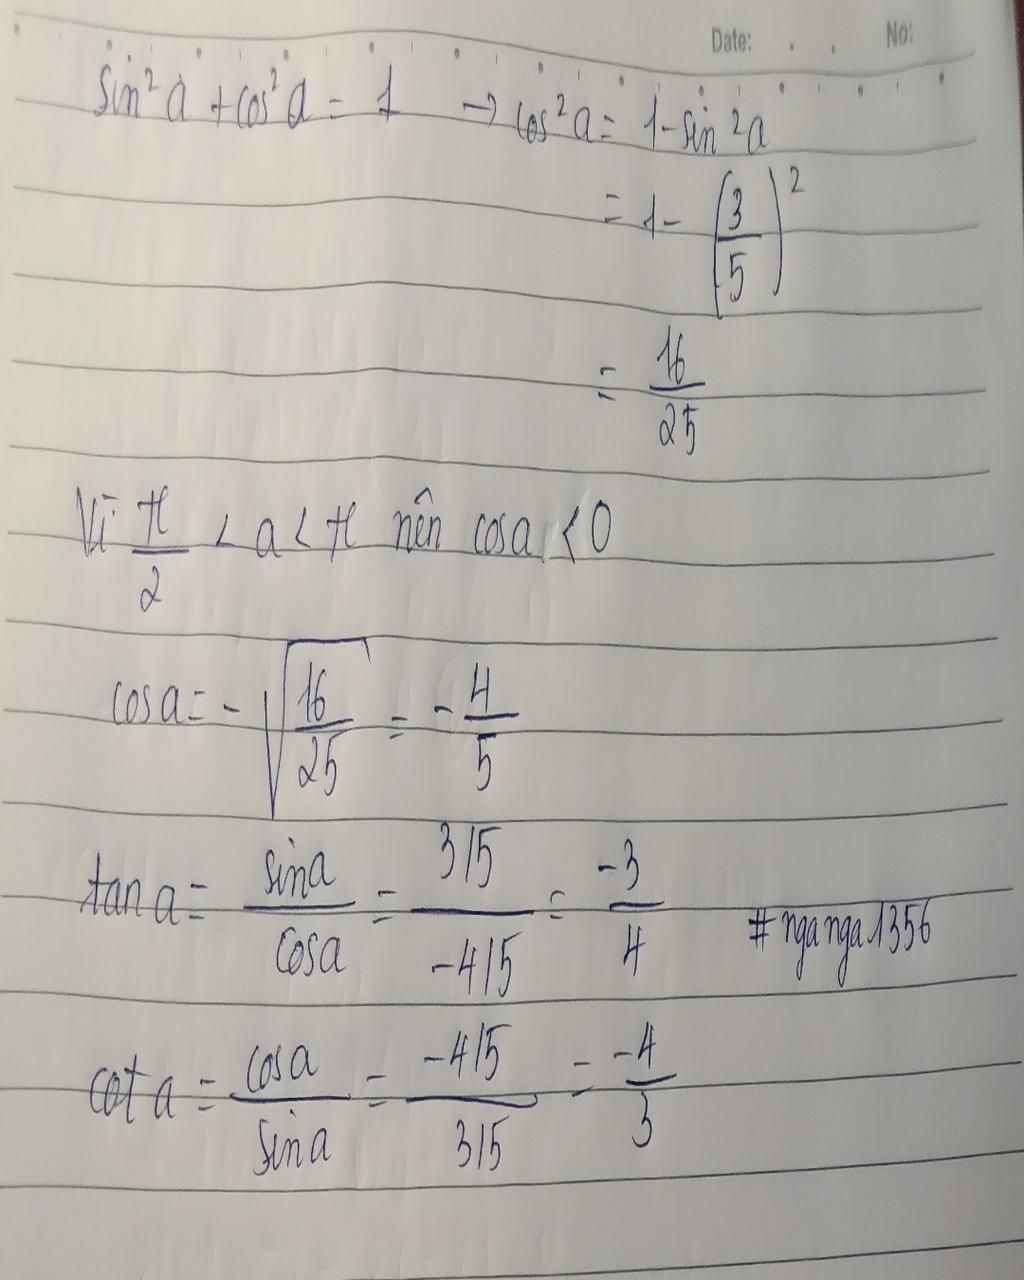 Date: No:
sin²a + cos²a = 1 → cos²a = 1 - sin²a
= 1 - (3/5)²
= 16/25
Vì π/2 < a < π nên cosa < 0
cosa = - √(16/25) = - 4/5
tan a = sina/cosa = (3/5)/(-4/5) = -3/4 #nganga1356
cot a = cosa/sina = (-4/5)/(3/5) = -4/3